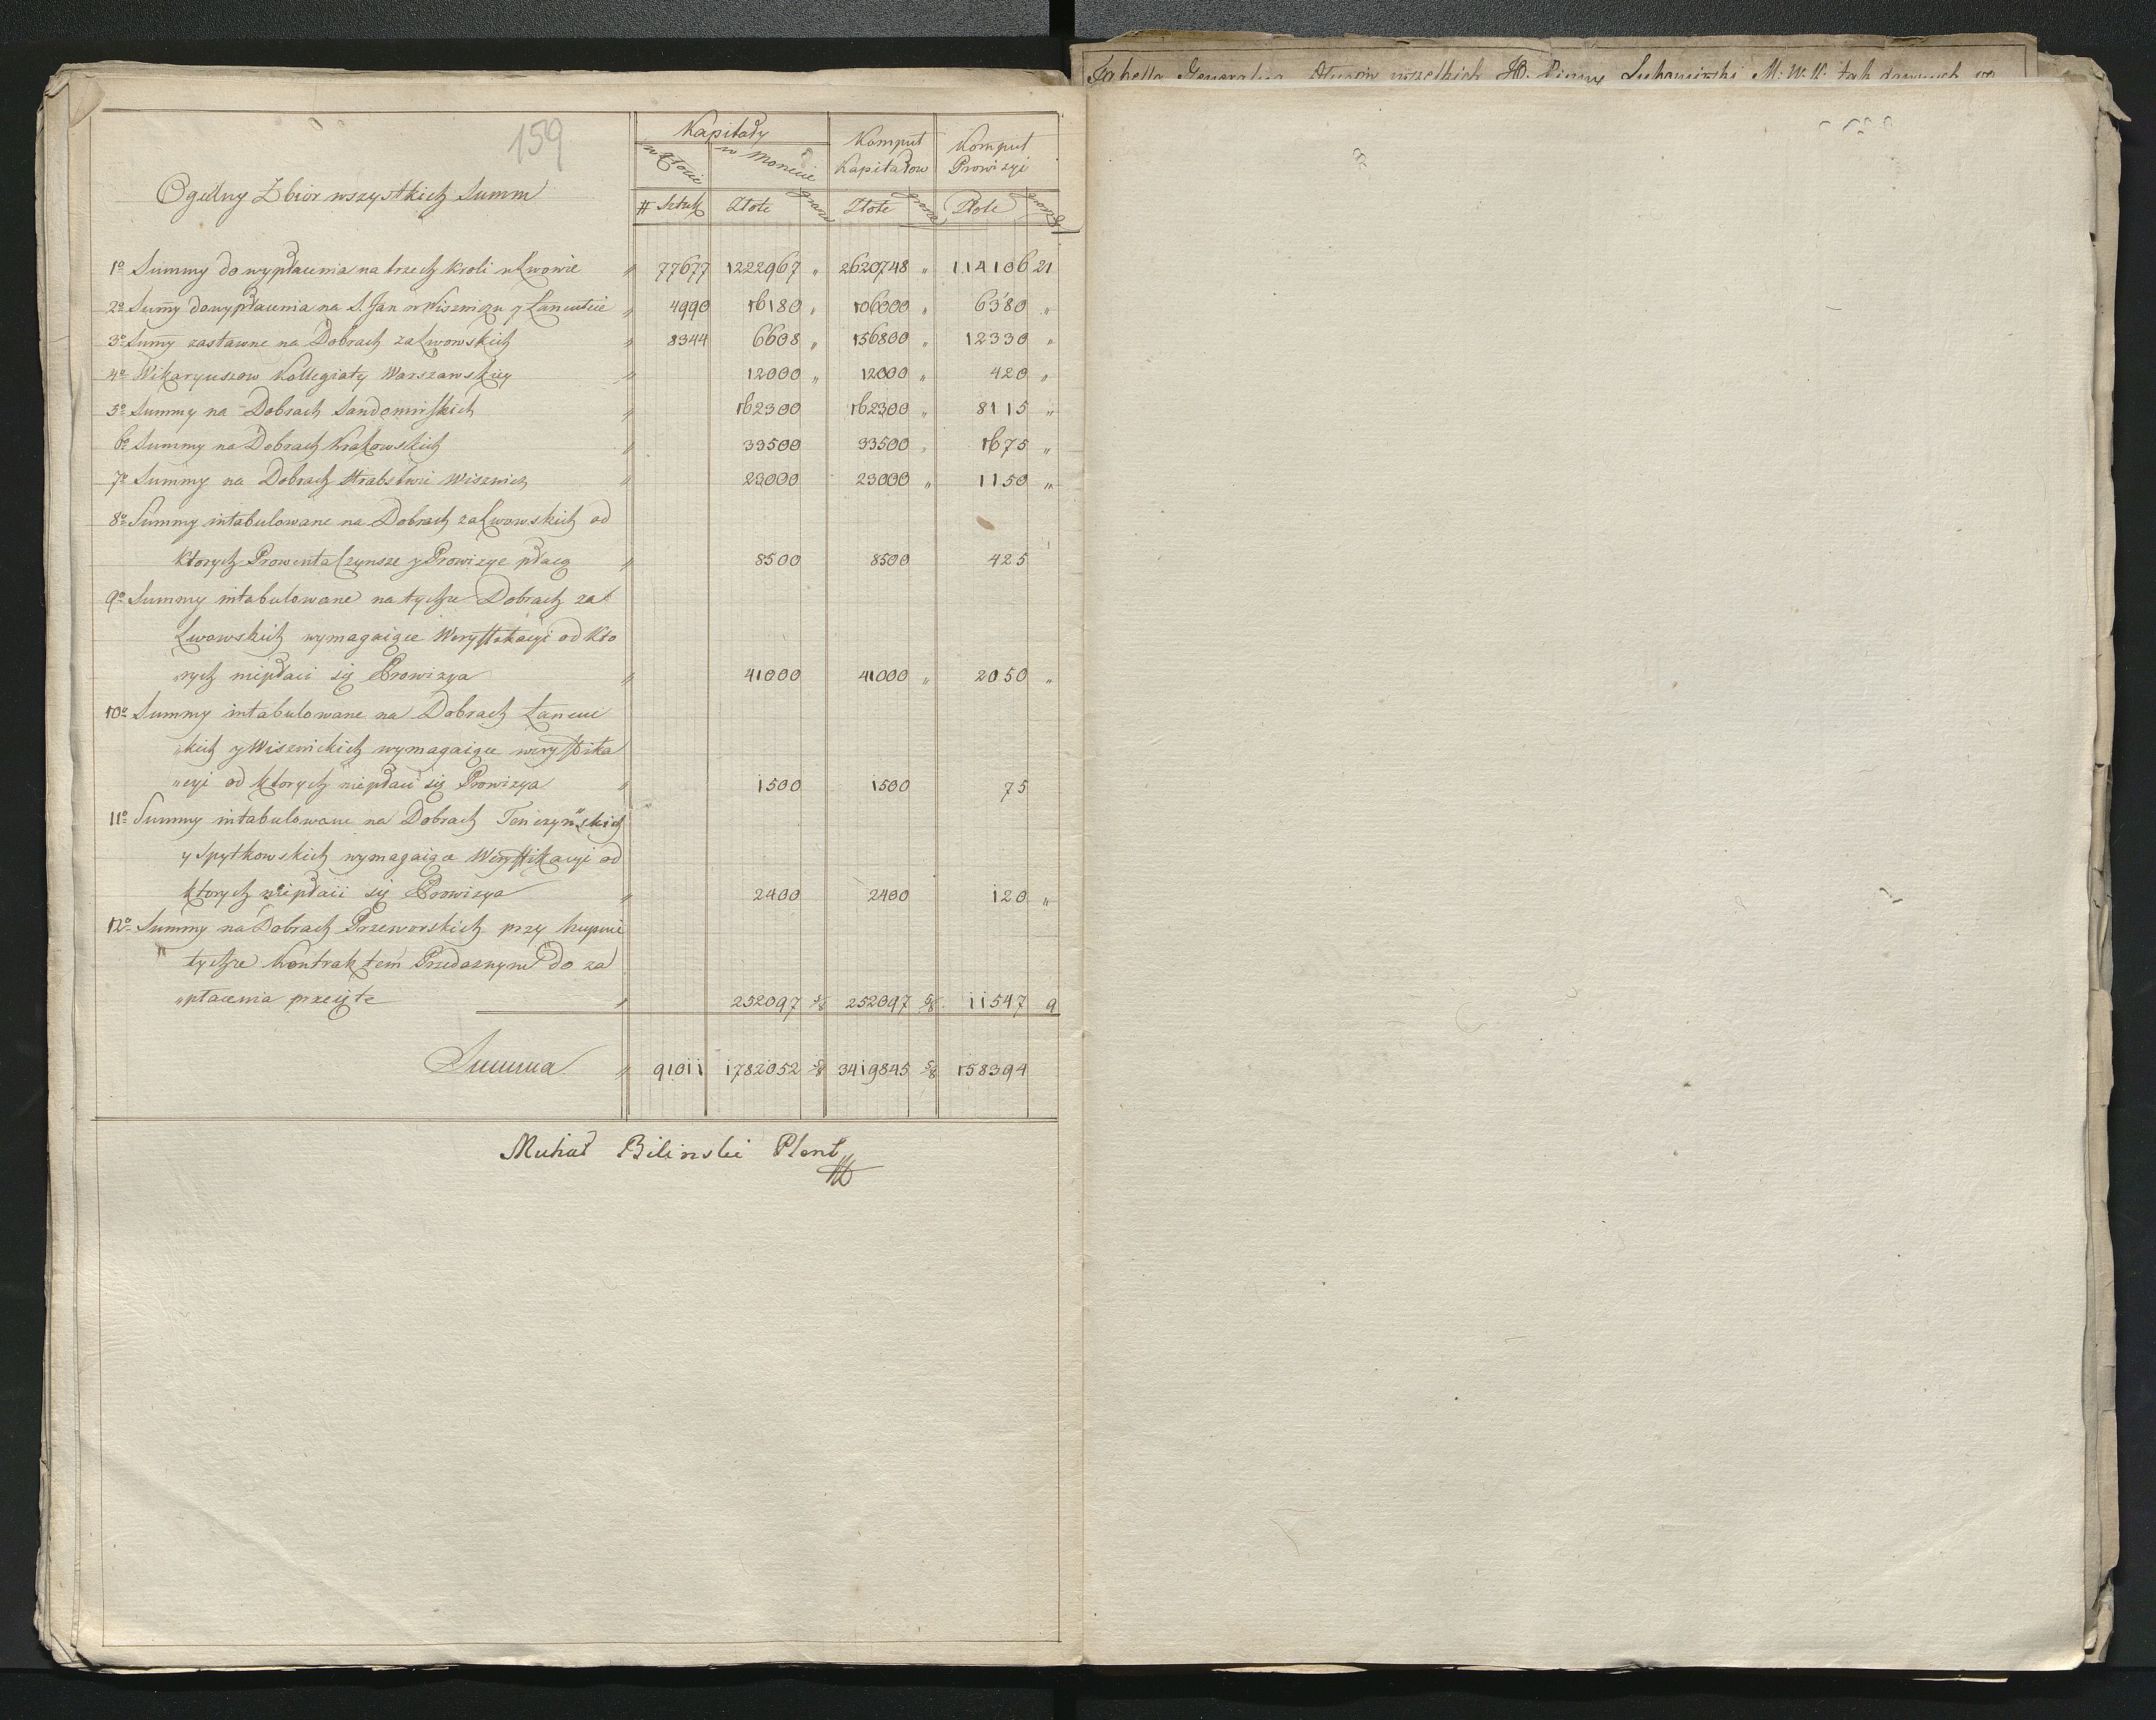 Tabella Generalna Długow wszelkich JO. Xiezny Lubomirski M. W. K. tak dawnych
159
Ogulny Zbior wszystkich Summ
Kapitały
w złocie w Monecie
Komput Kapitałow
Komput Prowizyi
# Sztuk Złote grosze Złote grosze Złote grosze
1º Summy do wypłacenia na trzech Kroli w Lwowie „ 77677 1222967 „ 2620748 „ 114106 21
2º Sumy do wypłacenia na S. Jan w Wiszniczu y Łancucie „ 4990 16180 „ 106000 „ 6380 „
3º Sumy zastawne na Dobrach zaLwowskich „ 8344 6608 „ 156800 „ 12330 „
4º Wikaryuszow Kollegiaty Warszawskiey „ 12000 „ 12000 „ 420 „
5º Summy na Dobrach Sandomirskich „ 162300 162300 „ 8115 „
6º Summy na Dobrach Krakowskich „ 33500 33500 „ 1675 „
7º Summy na Dobrach Hrabstwie Wisznich „ 23000 23000 „ 1150 „
8º Summy intabulowane na Dobrach zaLwowskich od
ktorych Prowenta Czynsze y Prowizye płacą „ 8500 8500 425
9º Summy intabulowane na tychże Dobrach za
Lwowskich wymagaiące Weryffikacyi od kto
„rych niepłaci się Prowizya „ 41000 41000 „ 2050 „
10º Summy intabulowane na Dobrach Łancuc
„kich y Wisznickich wymagaiące weryffika
„cyi od ktorych niepłaci się Prowizya „ 1500 1500 75
11º Summy intabulowane na Dobrach Tenczyńskich
y Spytkowskich wymagaiące Weryffikacyi od
ktorych niepłaci się Prowizya „ 2400 2400 120 „
12º Summy na Dobrach Przeworskich przy kupnie
tychże Kontraktem Przedażnym do za
„płacenia przeięte „ 252097 5/8 252097 5/8 11547 9
Summa „ 91011 1782052 5/8 3419845 5/8 158394
Michał Bilinski Plent